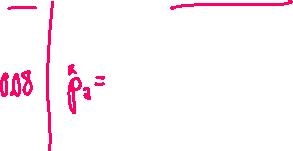 0.08 p̂₂ =